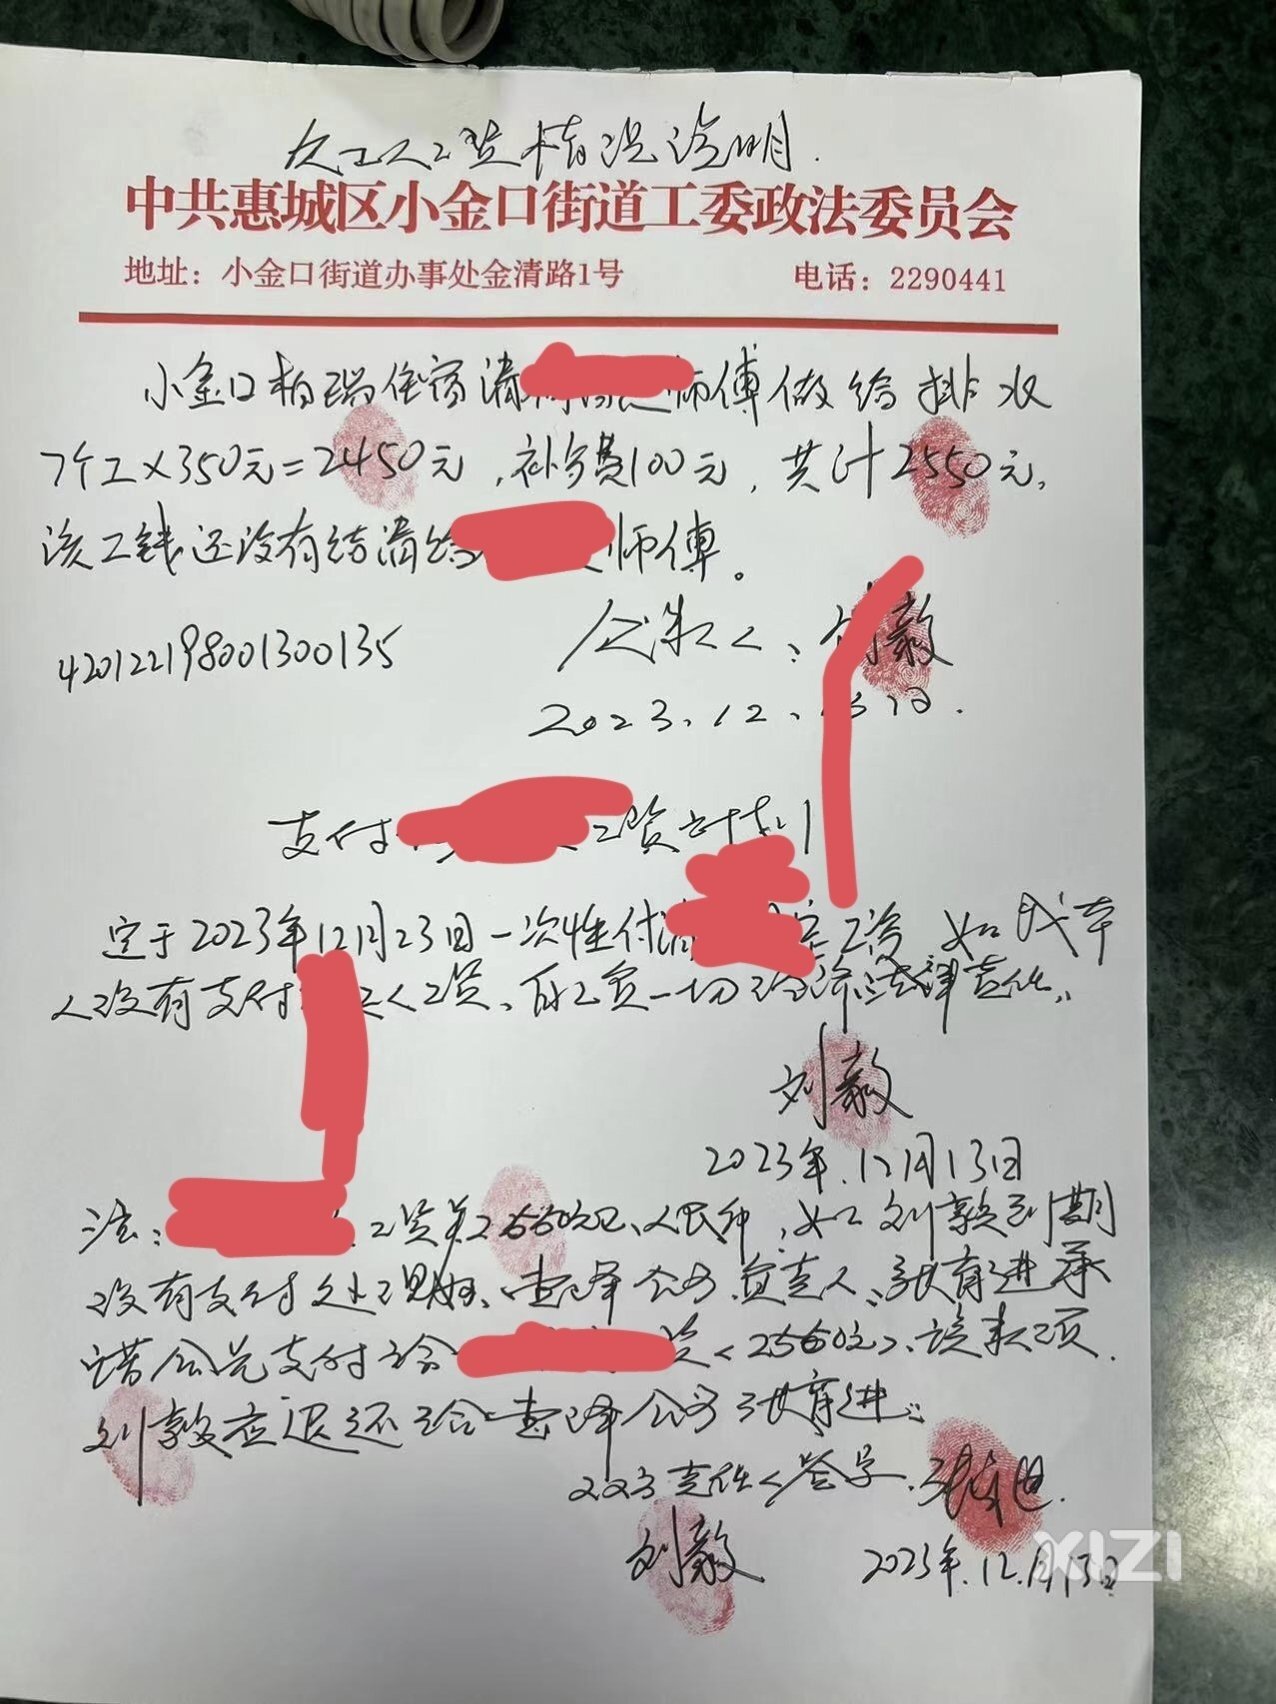 欠工人工资情况说明.
中共惠城区小金口街道工委政法委员会
地址：小金口街道办事处金清路1号 电话：2290441
小金口柏瑞住宿请 师傅做给排水
7个工×350元=2450元,补 费100元,共计2550元,
该工钱还没有结清给 师傅。
420122198001300135
人: 毅
2023.12.
支付 工资计划
定于2023年12月23日一次性付清 工资 如我本
人没有支付 工人工资、自 负一切 法律责任。
刘毅
2023年.12月13日
注: 工资共2550元、人民币,如刘毅到期
没有支付处理好、 公司负责人、张育进承
公司支付给 资<2550元>、该款项.
刘毅应退还给 公司张育进:
公司责任人签字.张育进.
刘毅 2023年.12.月13日
XIZI